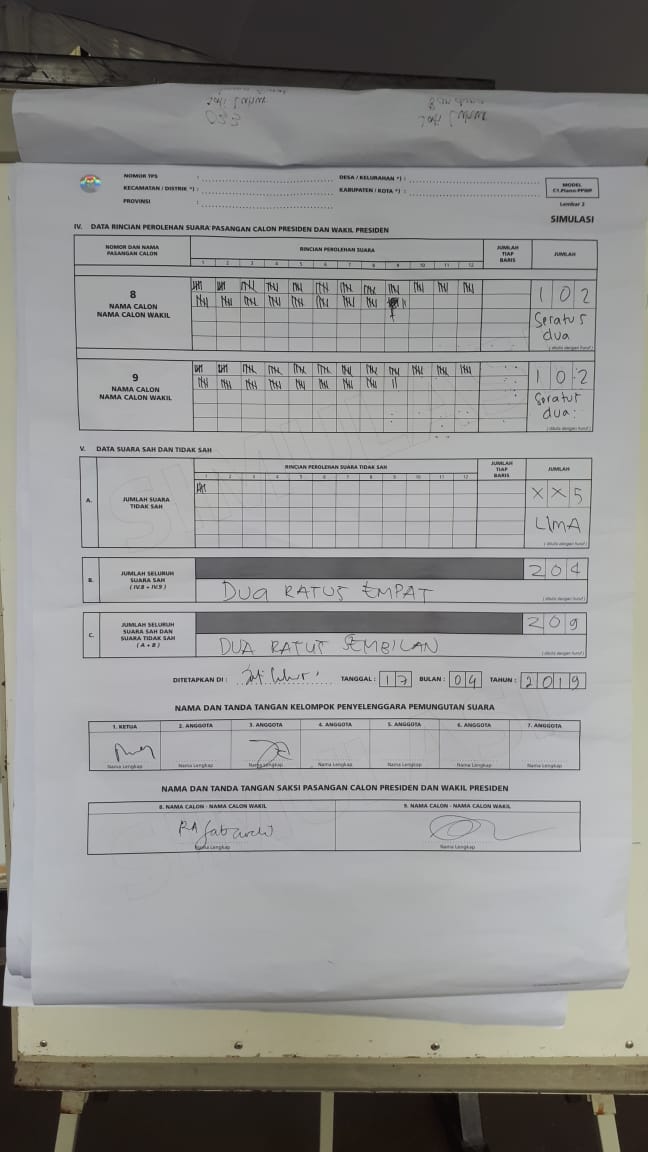 NOMOR TPS : DESA / KELURAHAN *) :
KECAMATAN / DISTRIK *) : KABUPATEN / KOTA *) :
PROVINSI :
MODEL
C1.Plano-PPWP
Lembar 2
SIMULASI
IV. DATA RINCIAN PEROLEHAN SUARA PASANGAN CALON PRESIDEN DAN WAKIL PRESIDEN
NOMOR DAN NAMA PASANGAN CALON RINCIAN PEROLEHAN SUARA JUMLAH TIAP BARIS JUMLAH
1 2 3 4 5 6 7 8 9 10 11 12
8
NAMA CALON
NAMA CALON WAKIL
1 0 2
Seratus
dua
( ditulis dengan huruf )
9
NAMA CALON
NAMA CALON WAKIL
1 0 2
Seratus
dua
( ditulis dengan huruf )
V. DATA SUARA SAH DAN TIDAK SAH
RINCIAN PEROLEHAN SUARA TIDAK SAH JUMLAH TIAP BARIS JUMLAH
1 2 3 4 5 6 7 8 9 10 11 12
A. JUMLAH SUARA
TIDAK SAH
X X 5
LIMA
( ditulis dengan huruf )
B. JUMLAH SELURUH
SUARA SAH
( IV.8 + IV.9 )
2 0 4
DUA RATUS EMPAT
( ditulis dengan huruf )
C. JUMLAH SELURUH
SUARA SAH DAN
SUARA TIDAK SAH
( A + B )
2 0 9
DUA RATUS SEMBILAN
( ditulis dengan huruf )
DITETAPKAN DI : TANGGAL : 17 BULAN : 04 TAHUN : 2019
NAMA DAN TANDA TANGAN KELOMPOK PENYELENGGARA PEMUNGUTAN SUARA
1. KETUA 2. ANGGOTA 3. ANGGOTA 4. ANGGOTA 5. ANGGOTA 6. ANGGOTA 7. ANGGOTA
Nama Lengkap Nama Lengkap Nama Lengkap Nama Lengkap Nama Lengkap Nama Lengkap Nama Lengkap
NAMA DAN TANDA TANGAN SAKSI PASANGAN CALON PRESIDEN DAN WAKIL PRESIDEN
8. NAMA CALON - NAMA CALON WAKIL 9. NAMA CALON - NAMA CALON WAKIL
Nama Lengkap Nama Lengkap